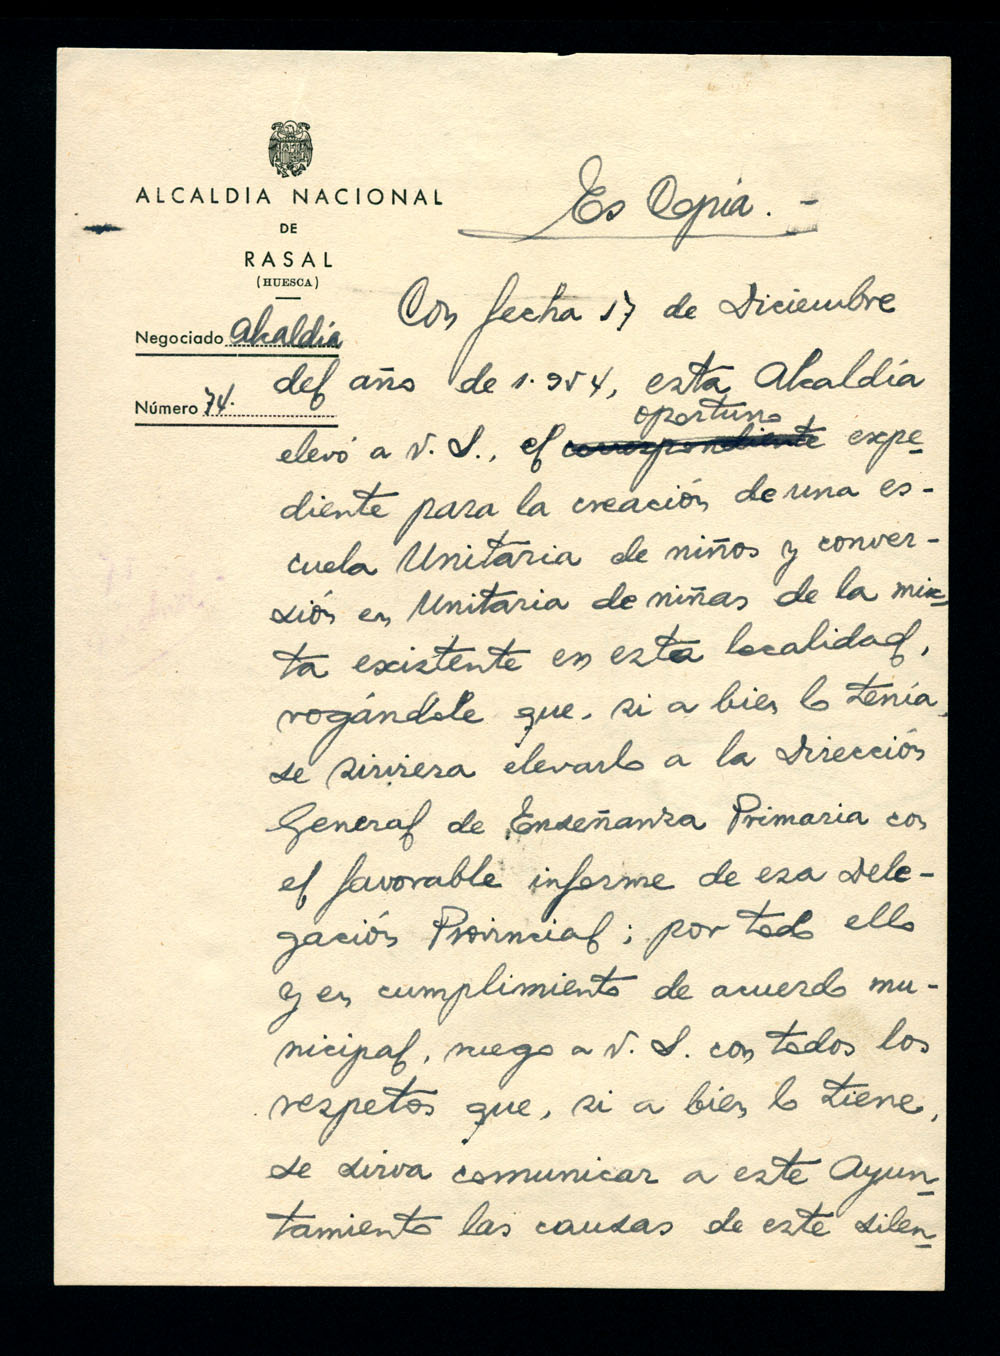 ALCALDIA NACIONAL
DE
RASAL
(HUESCA)
Negociado Alcaldía
Número 74.
Es Copia. -
Con fecha 17 de Diciembre
del año de 1.954, esta Alcaldía
oportuno
elevó a V. S., el correspondiente expe-
diente para la creación de una es-
cuela Unitaria de niños y conver-
sión en Unitaria de niñas de la mix-
ta existente en esta localidad,
rogándole que, si a bien lo tenía,
se sirviera elevarlo a la Dirección
General de Enseñanza Primaria con
el favorable informe de esa Dele-
gación Provincial; por todo ello
y en cumplimiento de acuerdo mu-
nicipal, ruego a V. S. con todos los
respetos que, si a bien lo tiene,
se sirva comunicar a este Ayun-
tamiento las causas de este silen-